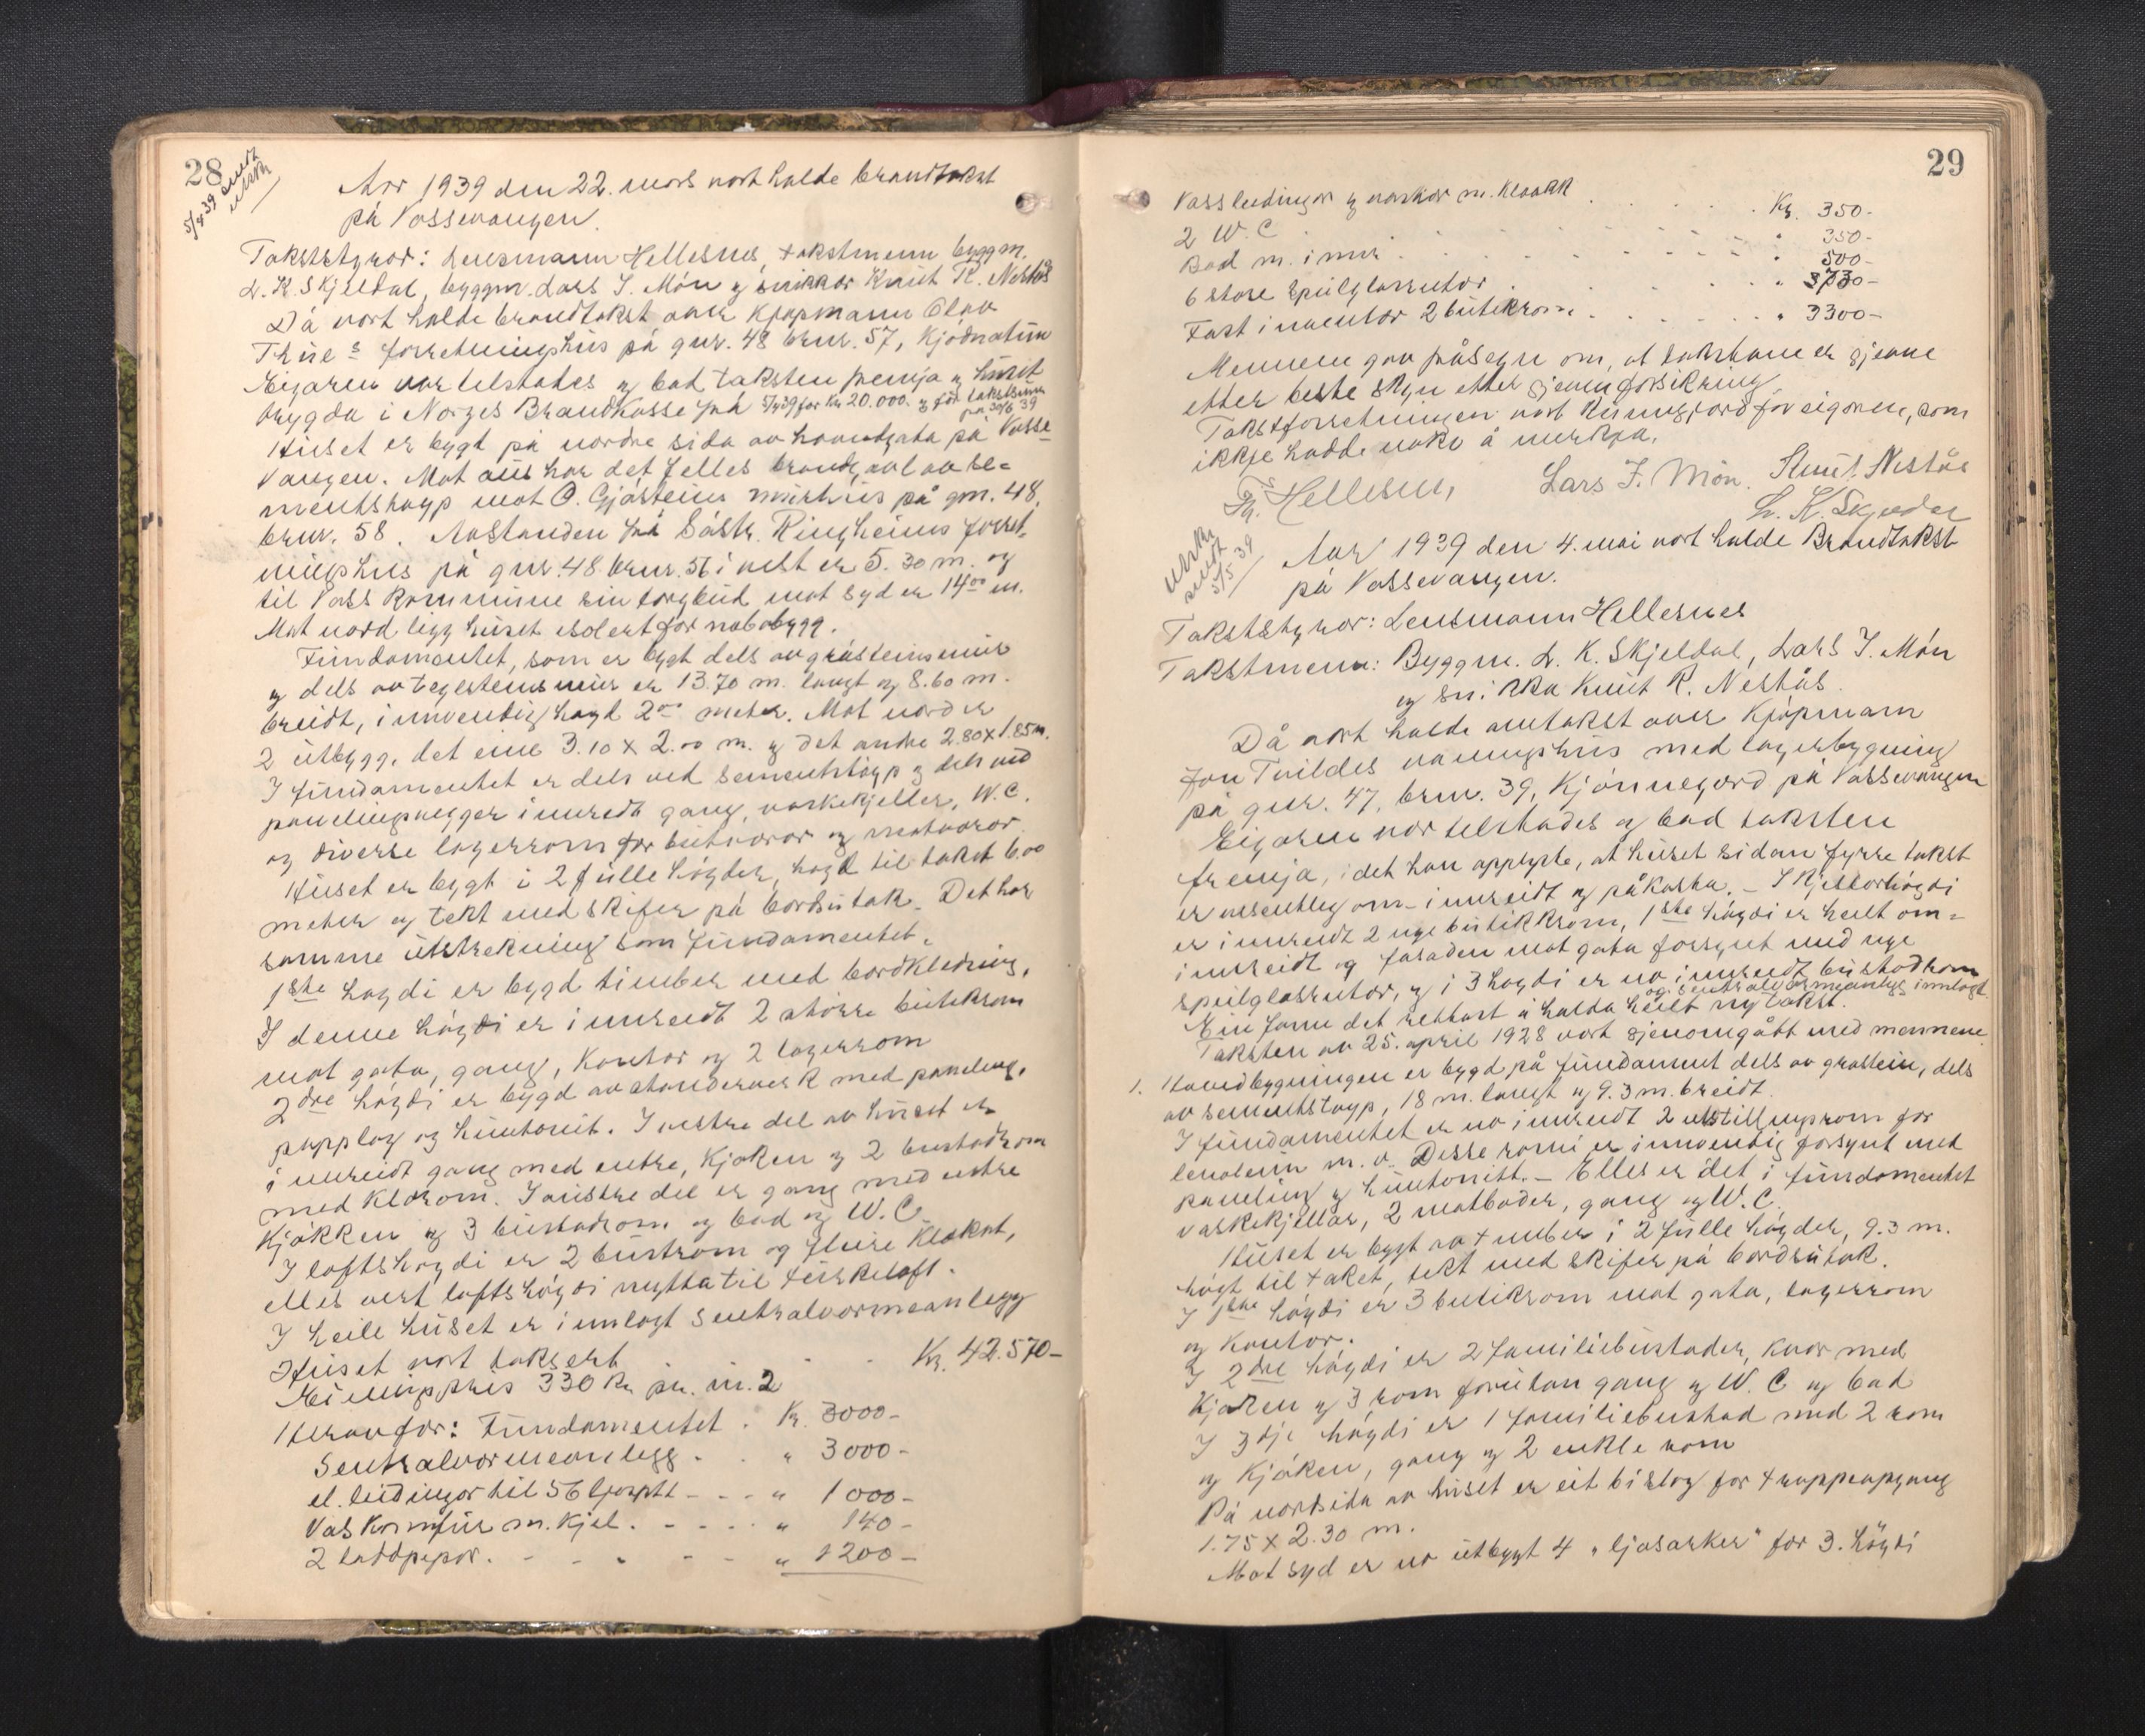 28
5/4 39 sendt
utskr.
Aar 1939 den 22. mars vart halde brandtakst
på Vossevangen.
Takststyrar: Lensmann Hellesnes, takstmenn byggm.
L. K. Skjeldal, byggm. Lars J. Møn og snikkar Knut R. Nestås
Då vart halde brandtakst over Kjøpmann Olav
Thues forretningshus på gnr. 48 brnr. 57,
Eigaren var tilstades og bad taksten fremja og huset
trygda i Norges Brandkasse frå 5/4 39 for Kr 20.000. og for takstsum
frå 30/6 39
Huset er bygt på nordre sida av hovudgata på Vosse-
vangen. Mot aus har det felles brandgavl av se-
mentstøyp mot O. Gjästeins murhus på gnr. 48,
brnr. 58. Avstanden frå Ringheims forret-
ningshus på gnr. 48 brnr. 56 i vest er 5.30 m. og
til Voss Kommune sin torgbud mot syd er 14.00 m.
Mot nord ligg huset isolert for nabobygg.
Fundamentet, som er bygt dels av gråsteinsmur
og dels av teglsteinsmur er 13.70 m. langt og 8.60 m.
breidt, innvendig høgd 2.00 meter. Mot nord er
2 utbygg, det eine 3.10 x 2.00 m. og det andre 2.80 x 1.85 m.
I fundamentet er dels ved sementstøyp og dels ved
panelingsvegger innreidt gang, vaskekjeller, W.C.
og diverse lagerrom for butvaror og matvaror.
Huset er bygt i 2 fulle høgder, høgd til taket 6.00
meter og tekt med skifer på bordsutak. Det har
samme utstrekning som fundamentet.
1ste høgdi er bygd timber med bordkledning.
I denne høgdi er innreidt 2 større butikrom
mot gata, gang, kontor og 2 lagerrom
2dre høgdi er bygd av standerverk med paneling,
papplag og huntonit. I vestre del av huset er
innreidt gang med entre, kjøken og 2 bustadrom
med klørom. I austre del er gang med entre
Kjøkken og 3 bustadrom og bad og W.C.
I loftshøgdi er 2 bustrom og fleire kleskot,
elles vert loftshøgdi nytta til turkeloft.
I heile huset er innlagt sentralvarmeanlegg
Huset vart taksert . . . Kr. 42.570-
Einingspris 330 kr. pr. m.2
Herav for: Fundamentet . Kr. 3000-
Sentralvarmeanlegg . . " 3000-
el. leidingar til 56 ljospkt - - - " 1000-
Vaskomfur m. kjel. - - - - " 140-
2 - - - " 1200-
29
Vassleidingar og vaskar m. kloakk . . . . . Kr. 350-
2 W.C. - - - - " 350-
Bad m. i mur . - - - - " 500-
6 store speilglasrutor . . . . "
Fast inventar 2 butikrom . . . . . " 3300-
Mennene gav påsegn om, at takstane er gjevne
etter beste skyn etter gjenomforsikring.
Takstforretningen vart kunngjord for eigaren, som
ikkje hadde noko å merkja.
Hellesnes, Lars J. Møn. Knut Nestås
L. K. Skjeldal
utskr.
sendt
5/5 39
Aar 1939 den 4. mai vart halde Brandtakst
på Vossevangen.
Takststyrar: Lensmann Hellesnes
Takstmenn: Byggm. L. K. Skjeldal, Lars J. Møn
og snikka Knut R. Nestås.
Då vart halde omtakst over Kjøpmann
Jon Tvildes våningshus med lagerbygning
på gnr. 47, brnr. 39, Kjønnegard på Vossevangen
Eigaren var tilstades og bad taksten
fremja, idet han opplyste, at huset sidan fyrre takst
er vesentleg om-innreidt og påkosta. - I kjellarhøgdi
er innreidt 2 nye butikkrom, 1ste høgdi er heilt om-
innreidt og fasaden mot gata forsynt med nye
speilglasrutor, og i 3 høgdi er no innreidt bustadrom
og sentralvarmeanlegg innlagt.
Ein fann det rettast å halda heilt ny takst.
Taksten av 25. april 1928 vart gjenomgått med mennene.
1. Hovudbygningen er bygd på fundament dels av gråstein, dels
av sementstøyp, 18 m. langt og 9.3 m. breidt.
I fundamentet er no innreidt 2 utstillingsrom for
m. v. Desse romi er innvendig forsynt med
paneling og huntonitt. - Elles er det i fundamentet
vaskekjellar, 2 matboder, gang og W.C.
Huset er bygt av tømber i 2 fulle høgder, 9.3 m.
høgt til taket, tekt med skifer på bordsutak.
I 1ste høgdi er 3 butikrom mot gata, lagerrom
og kontor.
I 2dre høgdi er 2 familiebustader, kvar med
Kjøken og 3 rom forutan gang og W.C og bad
I 3dje høgdi er 1 familiebustad med 2 rom
og kjøken, gang og 2 enkle rom
På nordsida av huset er eit bislag for trappeopgang
1.75 x 2.30 m.
Mot syd er no utbygt 4 "ljosarker" for 3. høgdi